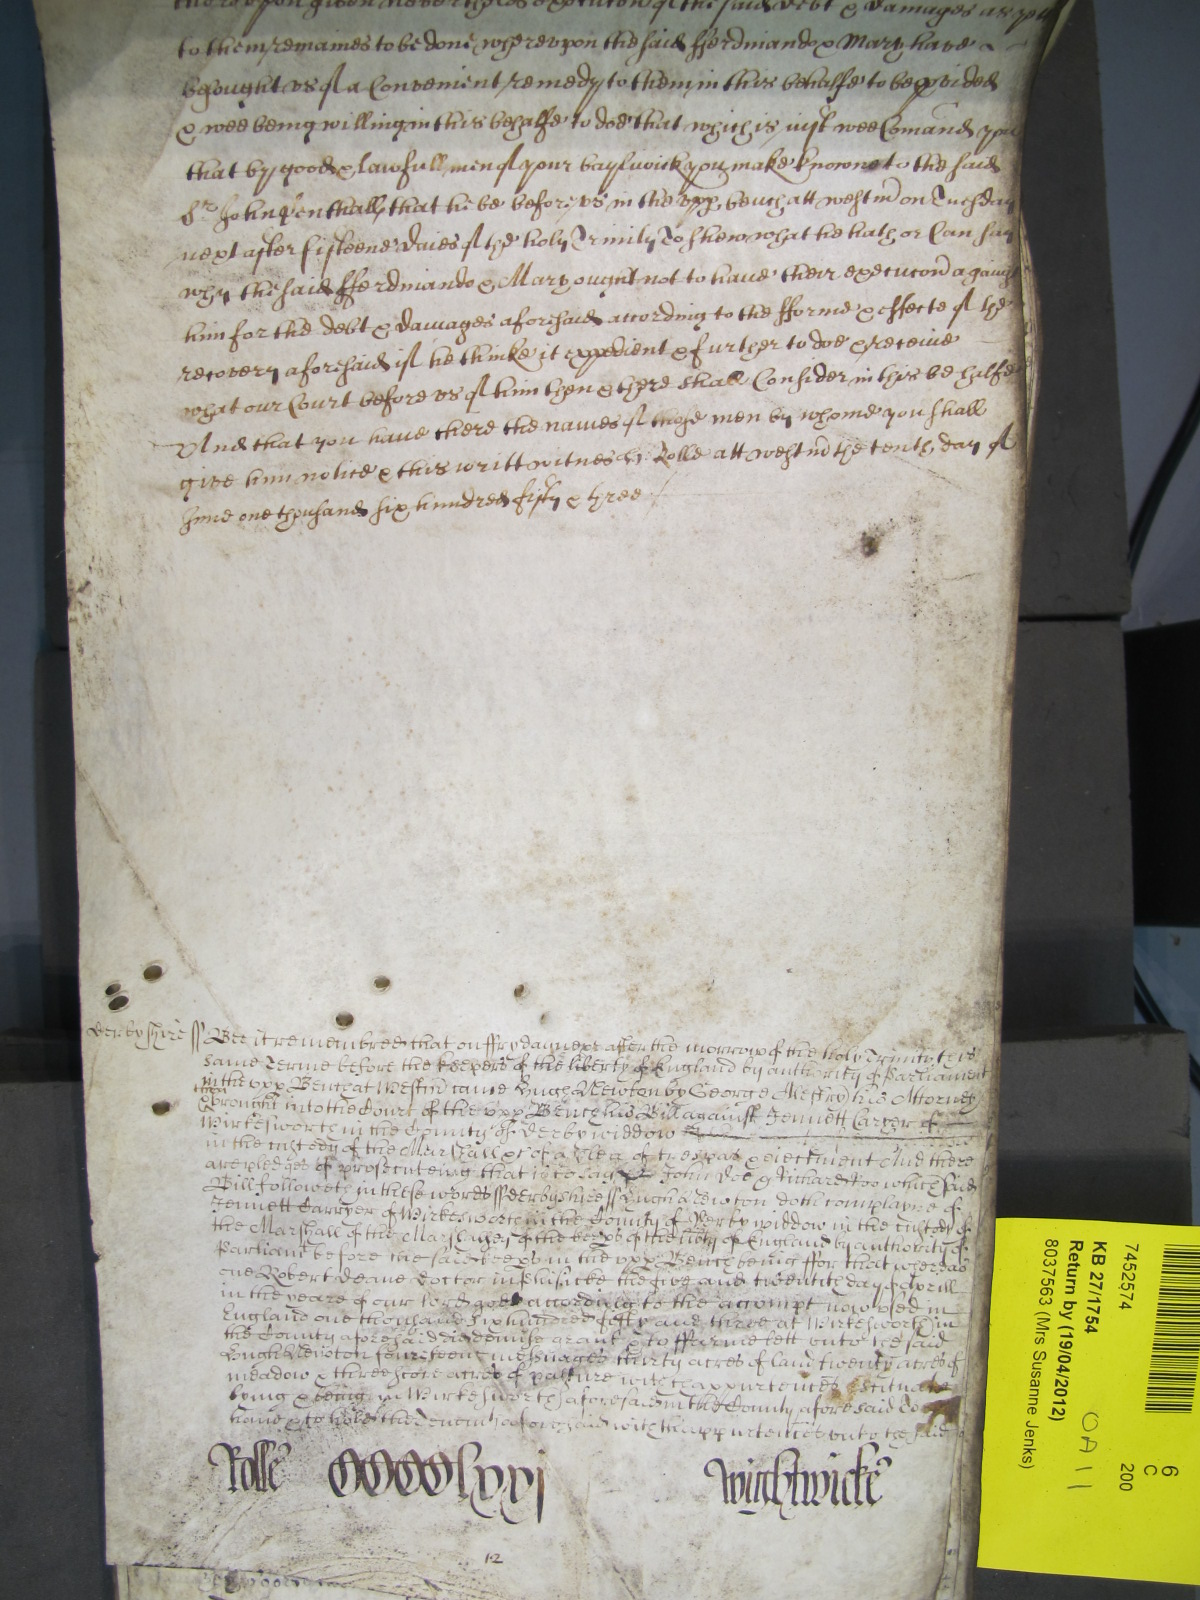 thereupon given nevertheles execucon of the said debt & damages as yett
to them remaines to be done wherevpon the said fferdinando & Mary have
besought vs of a Convenient remedy to them in this behalfe to be pvided
& wee being willing in this behalfe to doe that which is iust wee Comand you
that by good & lawfull men of your baylywick you make knowne to the said
Sr John that he be before vs in the vpp bench att westmr on Tuesday
next after fifteene daies of the holy Trinity To shew what he hath or Can say
why the said fferdinando & Mary ought not to haue their execucon against
him for the debt & damages aforesaid according to the fforme & effecte of the
recovery aforesaid if he thinke it expedient & further to doe & receiue
what our Court before vs of him then & there shall Consider in this behalfe
And that you haue there the names of those men by whome you shall
give him notice & this writt witnes H: Rolle att westmr the tenth day of
June one thousand six hundred fifty & three
Derbyshire ss Bee it remembred that on ffryday next after the morrow of the holy Trinity this
same Terme before the keepers of the liberty of England by authority of Parliament
in the vpp Bench at Westmr came Hugh Newton by George his Attorney
& brought into the Court of the vpp Bench his Bill against Jennett Carryer of
Wirkesworth in the County of Derby widdow
in the custody of the Marshall &c of a plea of trespas & eiectment And there
are pledges of prosecuteing that is to say John Doe & Richard Roo which said
Bill followeth in these words ss Derbyshire ss Hugh Newton doth complayne of
Jennett Carryer of Wirkesworth in the County of Derby widdow in the custody of
the Marshall of the Marshalsey of the keeps of the libty of England by authority of
Parliamt before the said keeps in the vpp Bench being ffor that whereas
one Robert Deane Doctor in Phisicke the five and twentith day of Aprill
in the yeare of our Lord god according to the accompt now vsed in
England one thousand six hundred fifty and three at Wirkesworth in
the County aforesaid did demise grant & to ffarme lett vnto the said
Hugh Newton fourteene messuages thirty acres of land twenty acres of
meadow & threescore acres of pasture with thappurtences scituate
lying & being in Wirkesworth aforesaid in the County aforesaid To
haue & to hold the Tenemts aforesaid with thappurtences vnto the said
Rolle CCCClxxj Wightwicke
12
7452574
KB 27/1754
Return by (19/04/2012)
8037563 (Mrs Susanne Jenks)
6
C
200
OA 11